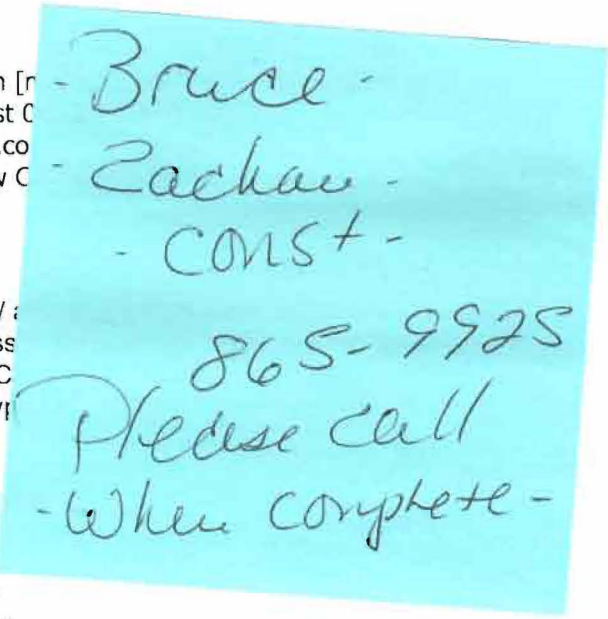 n [r
st 0
.co
w C
- Bruce -
- Zachau -
- Const -
865-9925
Please call
- When complete -